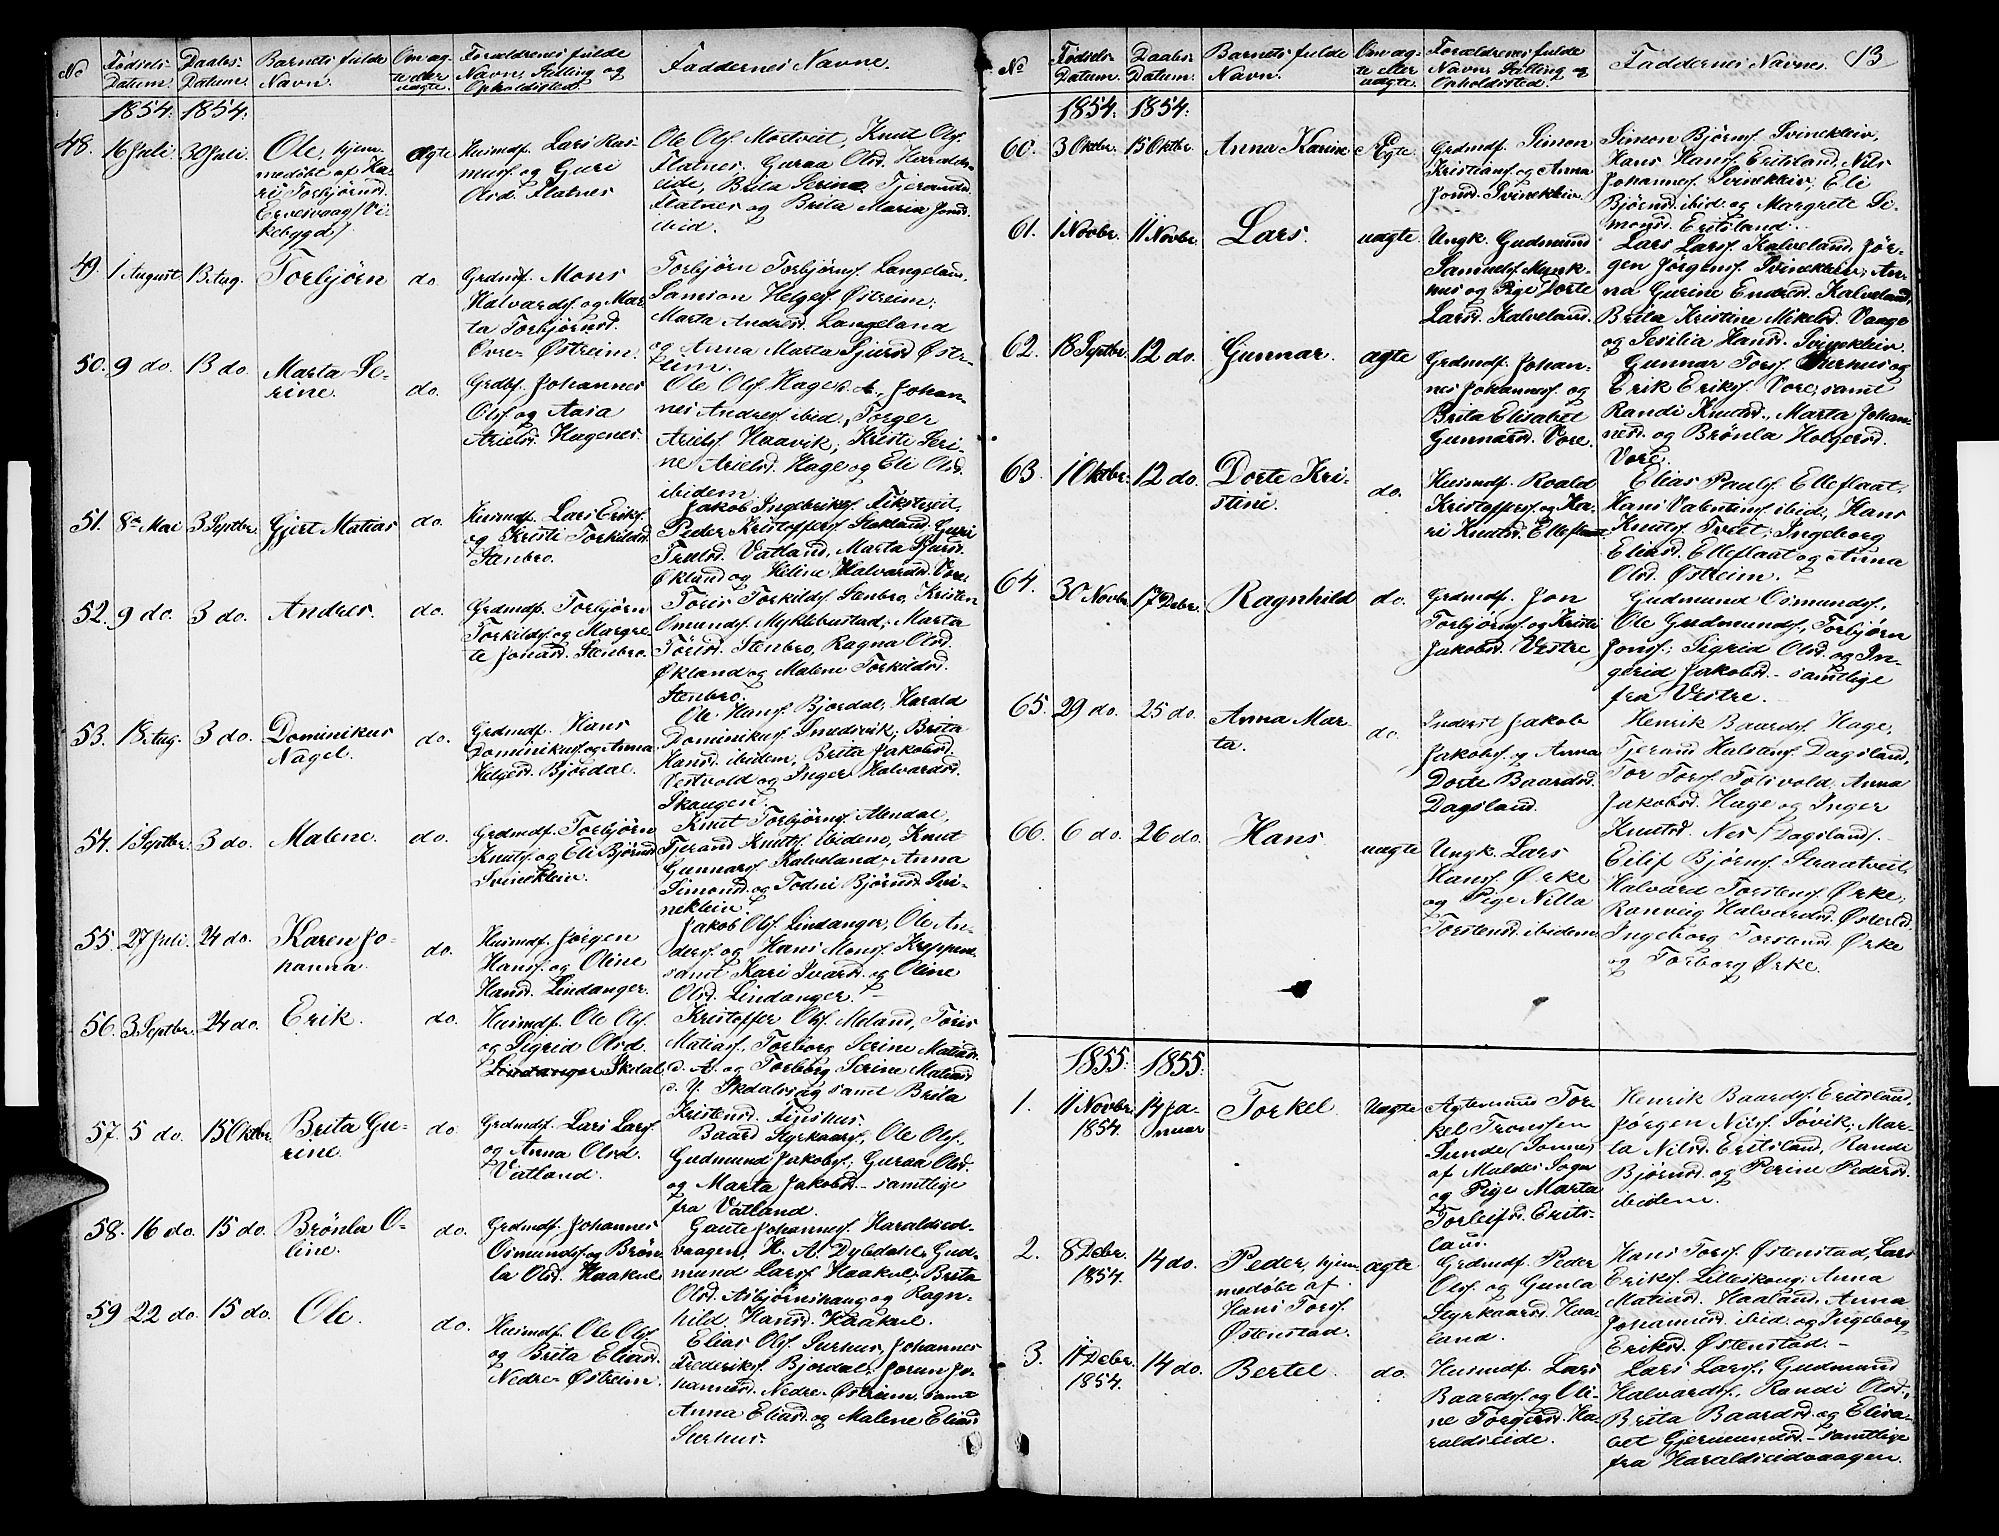 No
Fødsels-
Datum.
Daabs-
Datum.
Barnets fulde
Navn.
Om æg-
te eller
uægte.
Forældrenes fulde
Navn, Stilling og
Opholdssted.
Faddernes Navne.
1854. 1854.
48. 16 Juli 30 Juli Ole, hjem-
medøbt af Ka-
ri Torbjørnsd.
(Vi-
kebygd)
Ægte
Husmdf. Lars Ras-
musf. og Guri
Olsd. Flatnes
Ole Olsf. Mortveit, Knut Olsf.
Flatnes, Guraa Olsd. Haralds-
eide, Brita Serine Tjerandsd.
Flatnes og Brita Maria Jonsd.
ibid.
49. 1 August 13 Aug. Torbjørn do.
Grdmdf. Mons
Halvardsf. og Mar-
ta Torbjørnsd.
Øvre-Østreim.
Torbjørn Torbjørnsf. Langeland,
Samson Helgesf. Østreim,
Marta Andresd. Langeland
og Anna Marta Sjursd. Øst-
reim.
50. 9 do. 13 do. Marta Se-
rine. do.
Grdbf. Johannes
Olsf. og Aasa
Arielsd. Hagenes.
Ole Olsf. Hage d. A., Johan-
nes Andresf. ibid., Torger
Arielsf. Haavik, Kristi Seri-
ne Arielsd. Hage og Eli Olsd.
ibidem.
51. 8de Mai 3 Septbr. Gjert Matias do.
Husmdf. Lars Eriksf.
og Kristi Torkildsd.
Stenbro.
Jakob Ingebriktsf. Fikstveit,
Peder Kristoffersf. Stokland, Guri
Trulsd. Vatland, Marta Sjursd.
Økland og Seline Halvardsd. Vore.
52. 9 do. 3 do. Andres. do.
Grdmdf. Torbjørn
Torkildsf. og Margre-
te Jonasd. Stenbro.
Tøris Torkildsf. Stenbro, Kristen
Osmundsf. Myklebustad, Marta
Tørisd. Stenbro, Ragna Olsd.
Økland og Malene Torkildsd.
Stenbro.
53. 18 Aug. 3 do. Dominikus
Nagel. do.
Grdmdf. Hans
Dominikusf. og Anna
Helgesd. Bjordal.
Ole Hansf. Bjordal, Harald
Dominikusf. Smedsvik, Brita
Hansd. ibidem, Brita Jakobsd.
Vestvold og Inger Halvardsd.
Skaugen.
54. 1 Septbr. 3 do. Malene. do.
Grdmdf. Torbjørn
Knutsf. og Eli Bjørnsd.
Svineklein.
Knut Torbjørnsf. Alendal,
Tjerand Knutsf. ibidem, Knut
Gunnarsf. Kalveland, Anna
Simonsd. og Todni Bjørnsd. Svi-
neklein.
55. 27 Juli. 24 do. Karen Jo-
hanna. do.
Husmdf. Jørgen
Hansf. og Oline
Hansd. Lindanger.
Jakob Olsf. Lindanger, Ole An-
dersf. og Hans Monsf. Kroppene,
samt Kari Ivarsd. og Oline
Olsd. Lindanger.
56. 3 Septbr. 24 do. Erik. do.
Husmdf. Ole Olsf.
og Sigrid Olsd.
Lindanger Skdal.
Kristoffer Olsf. Meland, Tøris
Matiasf., Torborg Serine Matiasd.
d. A. og Torborg Serine Matiasd.
d. Y. Skdalsvaag samt Brita
Kristensd. Tinshus.
57. 5 do. 15 Oktbr. Brita Gu-
rine. do.
Grdmdf. Lars Larsf.
og Anna Olsd.
Vatland.
Baard Styrkaarsf., Ole Olsf.,
Gudmund Jakobsf., Guraa Olsd.
og Marta Jakobsd. - samtlige
fra Vatland.
58. 16 do. 15 do. Brønla O-
line. do.
Grdmdf. Johannes
Osmundsf. og Brøn-
la Olsd. Haakul.
Gaute Johannesf. Haraldseid-
vaagen, H. A. Dybdahl, Gud-
mund Larsf. Haakul, Brita
Olsd. Asbjørnshaug og Ragn-
hild Hansd. Haakul.
59. 22 do. 15 do. Ole. do.
Husmdf. Ole Olsf.
og Brita Eliasd.
Nedre-Østreim.
Elias Olsf. Surhus, Johannes
Frederiksf. Bjordal, Jorun Jo-
hannesd. Nedre-Østreim, samt
Anna Eliasd. og Malene Eliasd.
Surhus.
13
No
Fødsels-
Datum.
Daabs-
Datum.
Barnets fulde
Navn.
Om æg-
te eller
uægte.
Forældrenes fulde
Navn, Stilling og
Opholdssted.
Faddernes Navne.
1854. 1854.
60. 3 Oktbr. 15 Oktbr. Anna Karine Ægte
Grdmdf. Simon
Kristiansf. og Anna
Jonsd. Svineklein.
Simon Bjørnsf. Svineklein,
Hans Hansf. Eritsland, Nils
Johannesf. Svineklein, Eli
Bjørnsd. ibid. og Margrete Si-
monsd. Eritsland.
61. 1 Novbr. 11 Novbr. Lars. uægte.
Ungk. Gudmund
Samuelsf. Munk-
hus og Pige Dorte
Larsd. Kalveland.
Lars Larsf. Kalveland, Jør-
gen Jørgensf. Svineklein, An-
na Gurine Endresd. Kalveland,
Brita Kristine Mikelsd. Vaage
og Sesilia Hansd. Svineklein.
62. 18 Septbr. 12 do. Gunnar. ægte
Grdmdf. Johan-
nes Johannesf. og
Brita Elisabet
Gunnarsd. Vore.
Gunnar Torsf. Surhus og
Erik Eriksf. Vore, samt
Randi Knutsd., Marta Johan-
nesd. og Brønla Holgersd.
Vore.
63. 1 Oktbr. 12 do. Dorte Kri-
stine. do.
Husmdf. Roald
Kristoffersf. og Ka-
ri Knutsd. Elleflaat
Elias Paulsf. Elleflaat,
Hans Valentinsf. ibid., Hans
Knutsf. Tveet, Ingeborg
Eliasd. Elleflaat og Anna
Olsd. Østreim.
64. 30 Novbr. 17de Debr. Ragnhild do.
Grdmdf. Jon
Torbjørnsf. og Kristi
Jakobsd. Vestre
Gudmund Osmundsf.,
Ole Gudmundsf., Torbjørn
Jonsf., Sigrid Olsd. og In-
gerid Jakobsd. - samtlige
fra Vestre.
65. 29 do. 25 do. Anna Mar-
ta. do.
Inderst Jakob
Jakobsf. og Anna
Dorte Baardsd.
Dagsland.
Henrik Baardsf. Hage,
Tjerand Halstensf. Dagsland,
Tor Torsf. Tolivold, Anna
Jakobsd. Hage og Inger
Knutsd. Nes/Dagsland/.
66. 6 do. 26 do. Hans uægte
Ungk. Lars
Hansf. Ørke
og Pige Nilla
Torstensd. ibidem.
Eilif Bjørnsf. Straatveit,
Halvard Torstensf. Ørke,
Ranveig Halvardsd. Østerld.
Ingeborg Torstensd. Ørke
og Torborg Ørke.
1855. 1855.
1. 11 Novbr.
1854. 14 Ja-
nuar Torkel Uægte
Agtemmus Tor-
kel Tronsen
Sunde (Sonne)
af Maldes Sogn
og Pige Marta
Torleifsd. Erits-
land.
Henrik Baardsf. Eritsland,
Jørgen Nilsf. Søvik, Mar-
ta Nilsd. Eritsland, Randi
Bjørnsd. og Perine Pedersd.
ibidem.
2. 8 Debr.
1854. 14 do. Peder, hjem-
medøbt af
Hans Torsf.
Østenstad. ægte
Grdmdf. Peder
Olsf. og Gunla
Styrkaarsd. Haa-
land.
Hans Torsf. Østenstad, Lars
Eriksf. Lilleskoug, Anna
Matiasd. Haaland, Anna
Johannesd. ibid. og Ingeborg
Eriksd. Østenstad.
3. 11 Debr.
1854. 14 do. Bertel. do.
Husmdf. Lars
Baardsf. og Oli-
ne Torgersd. Ha-
raldseide.
Lars Larsf., Gudmund
Halvardsf., Randi Olsd.,
Brita Baardsd. og Elisa-
bet Gjermundsd. - samtlige
fra Haraldseidvaagen.